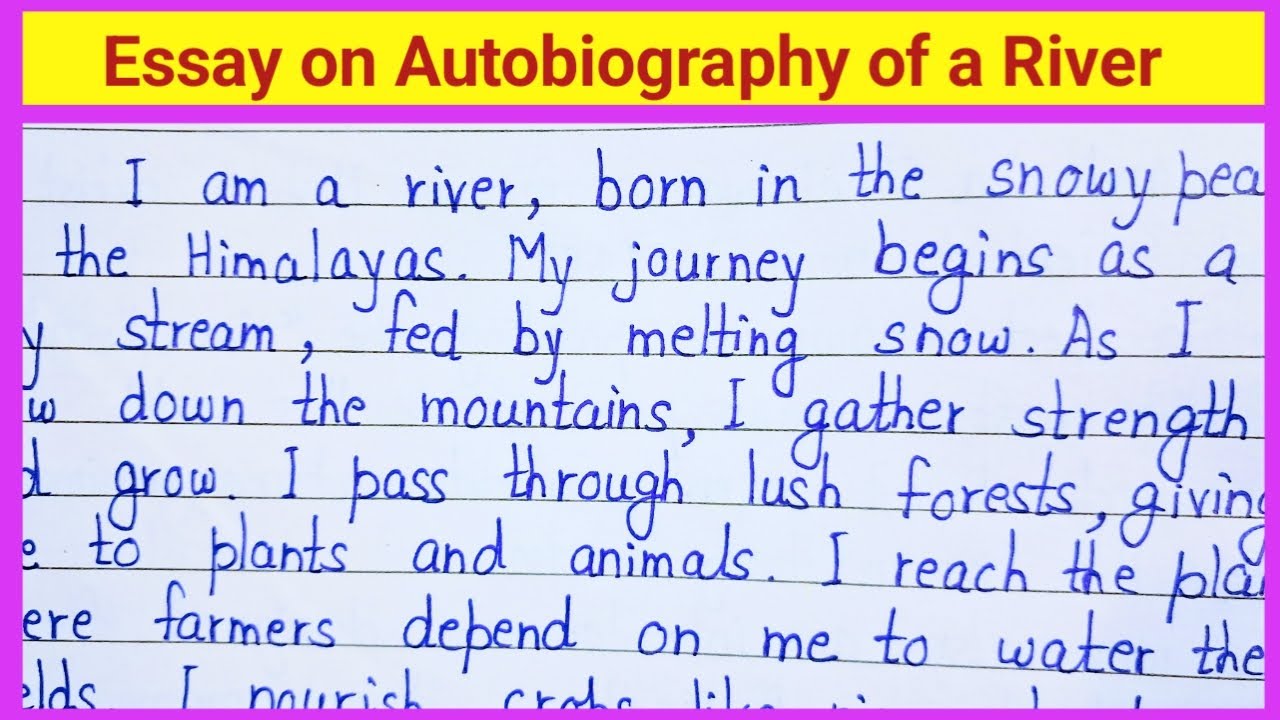 Essay on Autobiography of a River
I am a river, born in the snowy pea
the Himalayas. My journey begins as a
y stream, fed by melting snow. As I
w down the mountains, I gather strength
d grow. I pass through lush forests, giving
e to plants and animals. I reach the pla
ere farmers depend on me to water the
elds. I nourish crops like